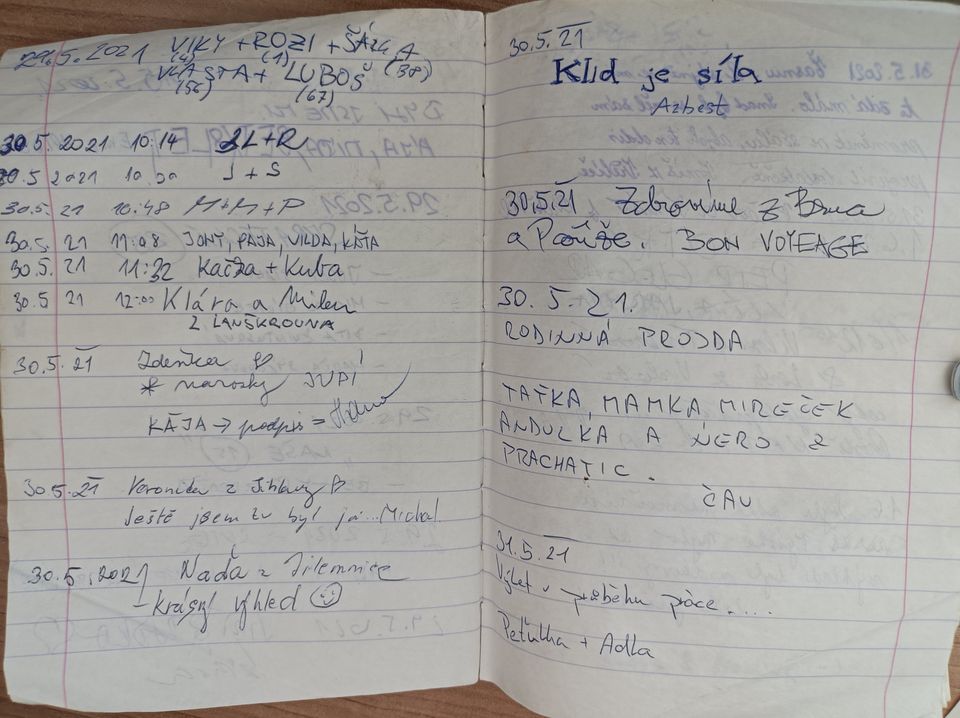 29.5.2021 VIKY + ROZI + ŠÁRKA
(4) (1) (38)
VLASTA + LUBOŠ
(56) (67)
30.5.2021 10:14 2L+R
30.5 2021 J + S
30.5.21 10:48 M+M+P
30.5.21 11:08 JONY, PÁJA, VILDA, KÁŤA
30.5.21 11:32 Kačka + Kuba
30.5 21 12:00 Klára a Milan
Z LANŠKROUNA
30.5.21 Zdeňka ♡
* JUPÍ
KÁJA → podpis =
30.5.21 Veronika z Jihlavy ♡
Ještě jsem tu byl já...Michal.
30.5.2021 Naďa z Jilemnice
- krásný výhled ☺
30.5.21
Klid je síla
Azbest
30.5.21 Zdravíme z Brna
a Paříže. BON VOYAGE
30.5.21.
RODINNÁ PROJDA
TAŤKA, MAMKA, MIREČEK
ANDULKA A NERO Z
PRACHATIC.
ČAU
31.5.21
Výlet v průběhu práce.....
Peťulka + Adla